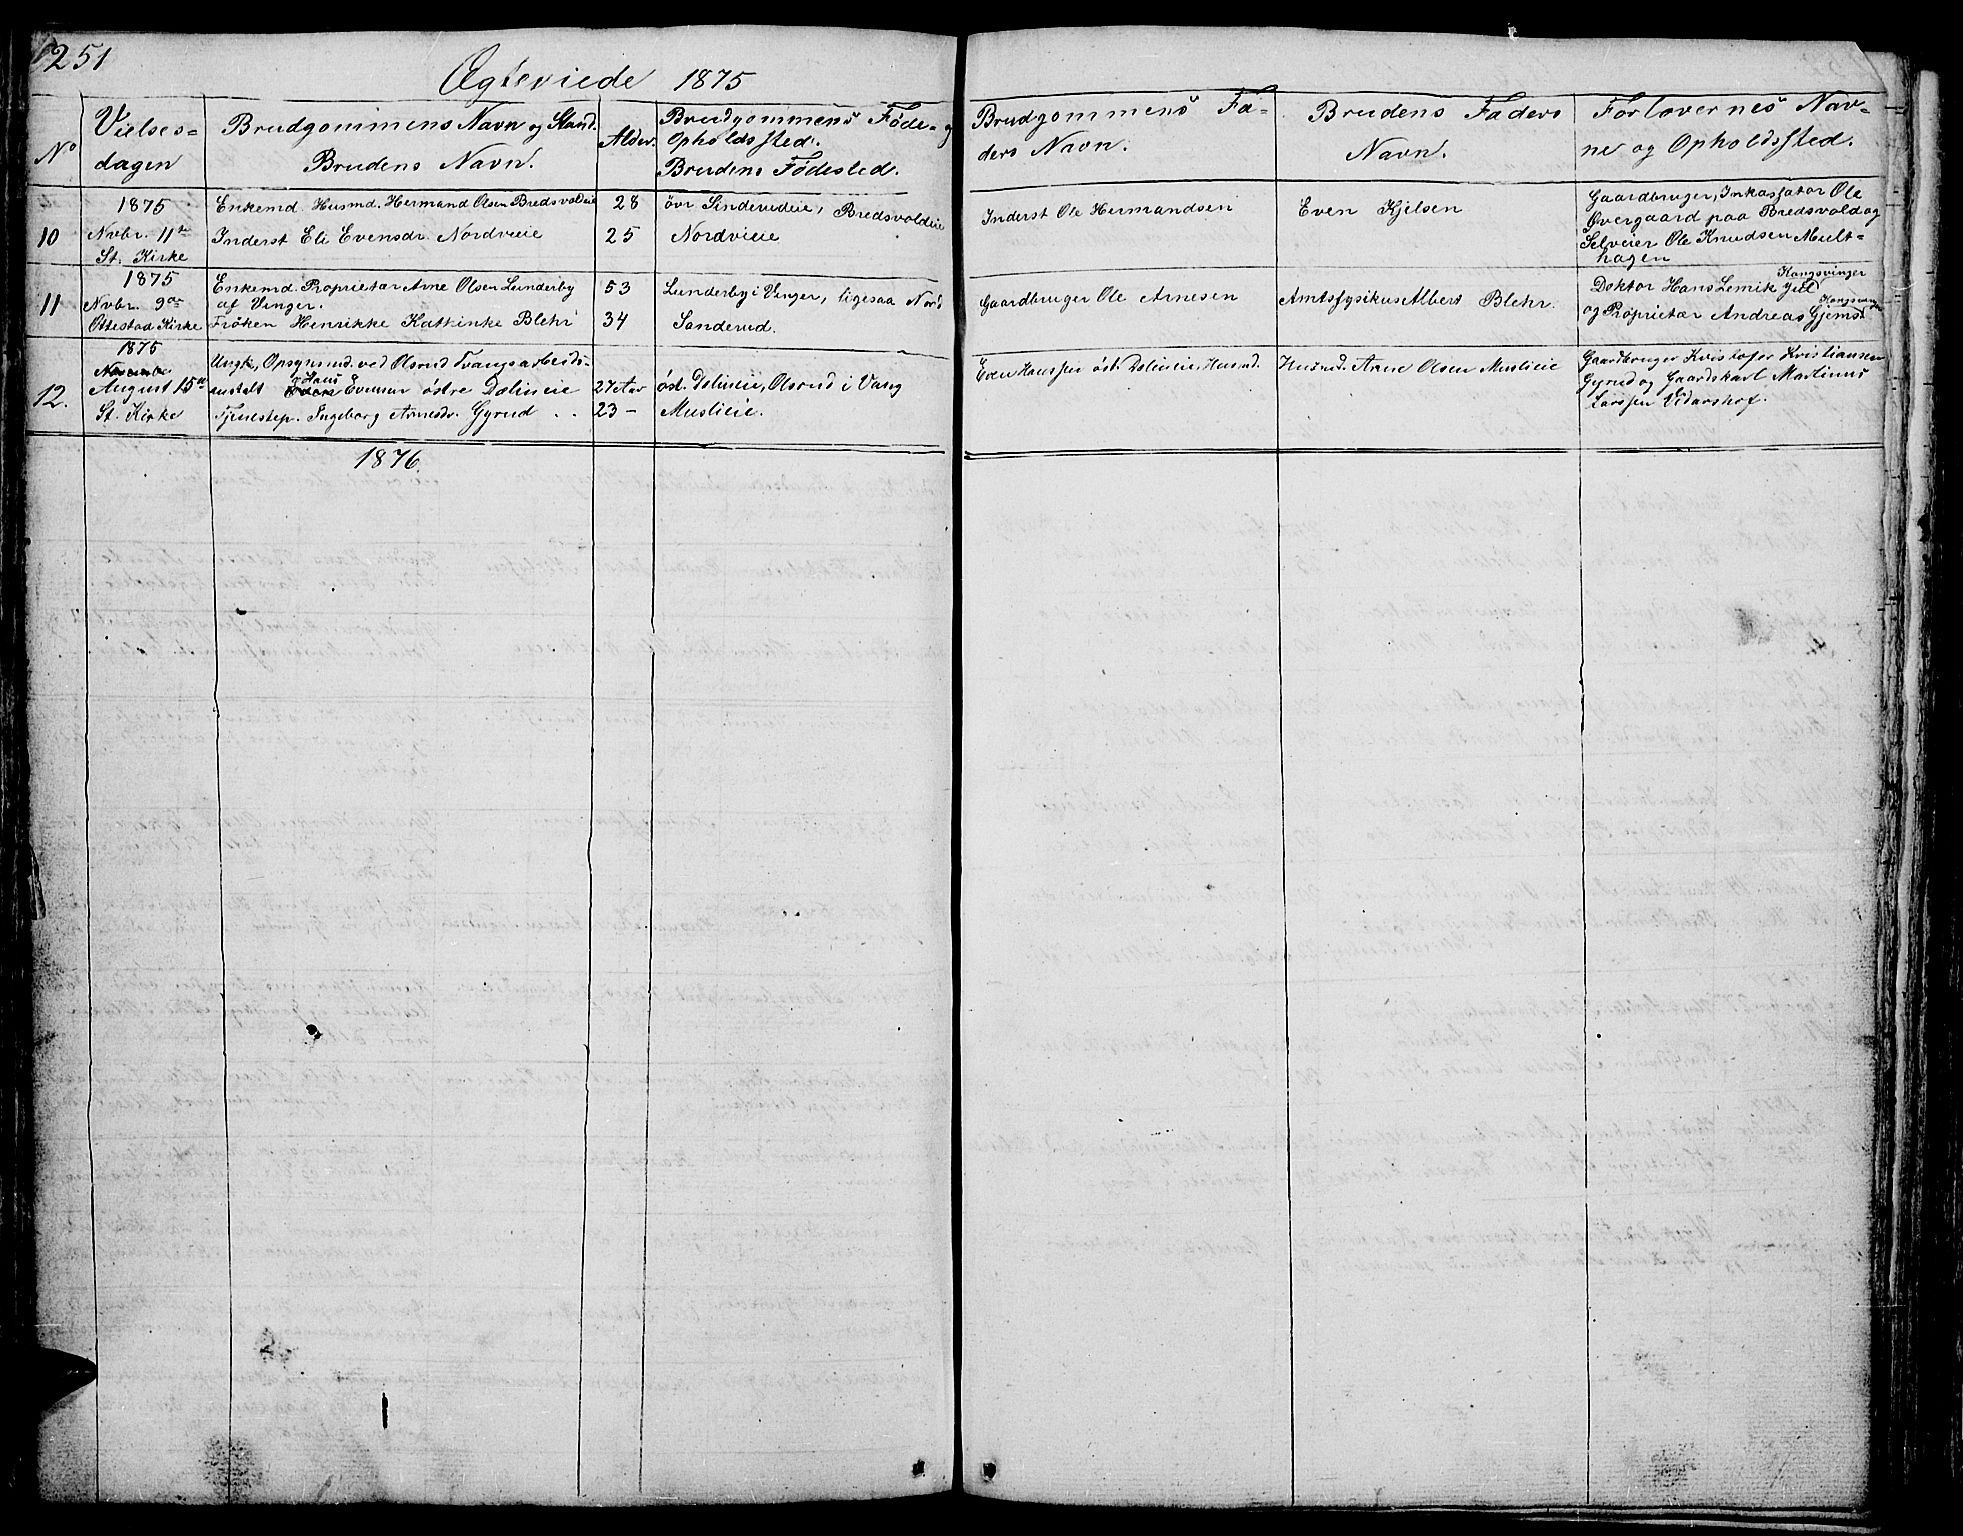 251
Ægteviede 1875
No
Vielses-
dagen
Brudgommens Navn og Stand.
Brudens Navn.
Alder.
Brudgommens Føde- og
Opholdssted.
Brudens Fødested.
Brudgommens Fa-
ders Navn.
Brudens Faders
Navn.
Forlovernes Nav-
ne og Opholdssted.
10
1875
Nvbr. 11te
St. Kirke
Enkemd. Husmd. Hermand Olsen Bredsvoldeie
Inderst Eli Evensdr. Nordvieie
28
25
övr Sinderudeie, Bredsvoldeie
Nordvieie
Inderst Ole Hermandsen
Even Kjelsen
Gaardbruger, Inkassator Ole
Overgaard paa Bredsvold og
Selveier Ole Knudsen Mult-
hagen
11
1875
Nvbr. 9de
Ottestad Kirke
Enkemd. Proprietær Arne Olsen Lunderby
af Vinger.
Fröken Henrikke Kathinke Blehr
53
34
Lunderby i Vinger, ligesaa
Sanderud.
Gaardbruger Ole Arnesen
Amtsfysikus Albert Blehr.
Kongsvinger
Doktor Hans Lemik Juel
og Proprietær Andreas Gjems
12.
1875
August 15de
St. Kirke
Ungk., Opsynsmd. ved Olsrud Tvangsarbeids-
anstalt Hans Evensen østre Dolineie
Tjenestep. Ingeborg Arnesdr. Gyrud . .
27 Aar
23 –
öst. Dolineie, Olsrud i Vang
Muslieie.
Even Hanssen öst. Dolineie, Husmd.
Husmd. Arne Olsen Muslieie
Gaardbruger Kristofer Kristiansen
Gyrud og Gaardskarl Martinus
Larssen Vidarshof.
1876.